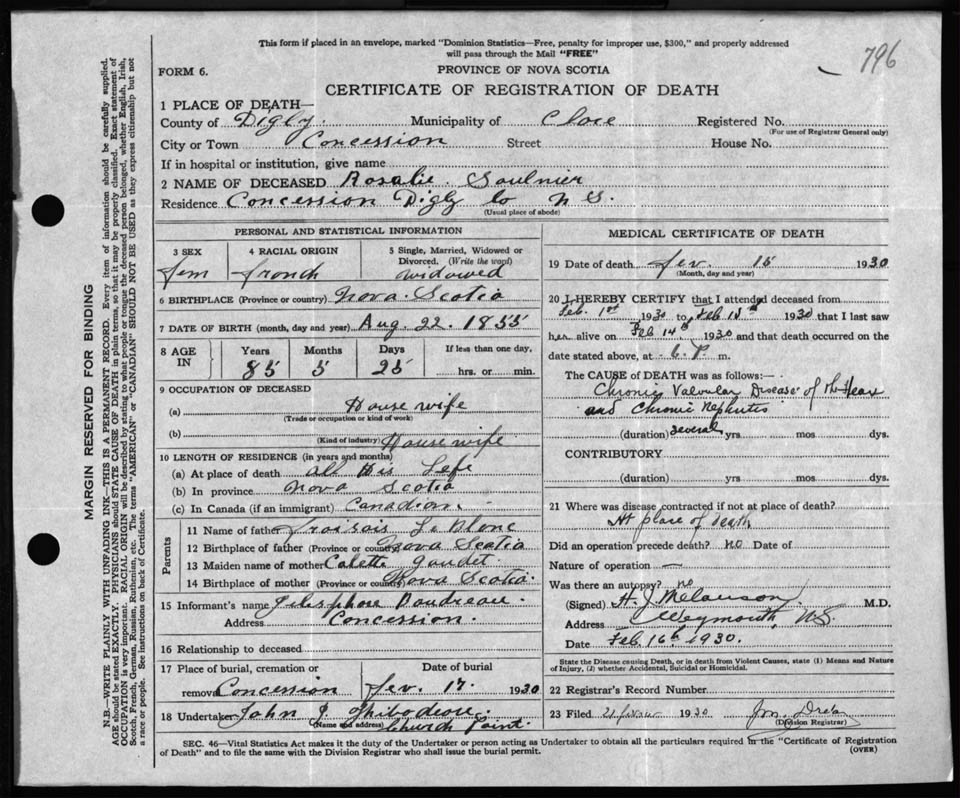 This form if placed in an envelope, marked "Dominion Statistics—Free, penalty for improper use, $300," and properly addressed
will pass through the Mail "FREE"
796
FORM 6.
PROVINCE OF NOVA SCOTIA
CERTIFICATE OF REGISTRATION OF DEATH
1 PLACE OF DEATH—
County of Digby Municipality of Clare Registered No.
(For use of Registrar General only)
City or Town Concession Street House No.
If in hospital or institution, give name
2 NAME OF DECEASED Rosalie Saulnier
Residence Concession Digby Co N S.
(Usual place of abode)
PERSONAL AND STATISTICAL INFORMATION
3 SEX Fem
4 RACIAL ORIGIN French
5 Single, Married, Widowed or
Divorced. (Write the word)
Widowed
6 BIRTHPLACE (Province or country) Nova Scotia
7 DATE OF BIRTH (month, day and year) Aug. 22. 1855
8 AGE IN Years Months Days If less than one day,
85 5 25 hrs. or min.
9 OCCUPATION OF DECEASED
(a) House wife
(Trade or occupation or kind of work)
(b) House wife
(Kind of industry)
10 LENGTH OF RESIDENCE (in years and months)
(a) At place of death all His Lefe
(b) In province Nova Scotia
(c) In Canada (if an immigrant) Canadian
Parents
11 Name of father Le Blanc
12 Birthplace of father (Province or country) Nova Scotia
13 Maiden name of mother Colette Gaudet
14 Birthplace of mother (Province or country) Nova Scotia.
15 Informant's name Boudreau.
Address Concession.
16 Relationship to deceased
17 Place of burial, cremation or Date of burial
removal Concession Fev. 17. 1930
18 Undertaker John J. Thibodeau
(Name and address) Church Point.
MEDICAL CERTIFICATE OF DEATH
19 Date of death Fev. 15 1930
(Month, day and year)
20 I HEREBY CERTIFY that I attended deceased from
Feb. 1st 1930 to Feb 15th 1930 that I last saw
her alive on Feb 14th 1930 and that death occurred on the
date stated above, at 6. P. m.
The CAUSE of DEATH was as follows:—
Chronic Valvular Disease of the Heart
and Chronic Nephritis
(duration) several yrs. mos dys.
CONTRIBUTORY
(duration) yrs. mos. dys.
21 Where was disease contracted if not at place of death?
At place of Death
Did an operation precede death? no Date of
Nature of operation —
Was there an autopsy? no
(Signed) H. J. Melanson M.D.
Address Weymouth, NS.
Date Feb. 16th 1930.
State the Disease causing Death, or in death from Violent Causes, state (1) Means and Nature
of Injury, (2) whether Accidental, Suicidal or Homicidal.
22 Registrar's Record Number
23 Filed 21 1930
(Division Registrar)
SEC. 46—Vital Statistics Act makes it the duty of the Undertaker or person acting as Undertaker to obtain all the particulars required in the "Certificate of Registration
of Death" and to file the same with the Division Registrar who shall issue the burial permit.
(OVER)
MARGIN RESERVED FOR BINDING
N.B.—WRITE PLAINLY WITH UNFADING INK—THIS IS A PERMANENT RECORD. Every item of information should be carefully supplied.
AGE should be stated EXACTLY. PHYSICIANS should STATE CAUSE OF DEATH in plain terms, so that it may be properly classified. Exact statement of
OCCUPATION is very important. RACIAL ORIGIN will be described by stating to what people or tongue the deceased person belonged, whether English, Irish,
Scotch, French, German, Russian, Ruthenian, etc. The terms "AMERICAN" or "CANADIAN" SHOULD NOT BE USED as they express citizenship but not
a race or people. See instructions on back of Certificate.